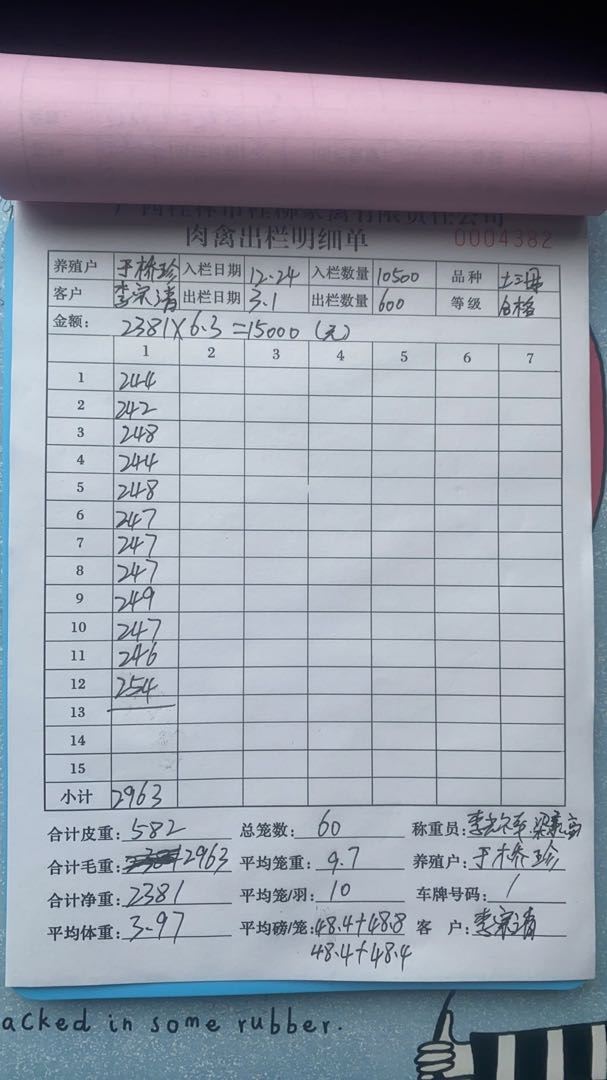 广西桂林市桂柳家禽有限责任公司
肉禽出栏明细单 0004382
养殖户 于桥珍 入栏日期 12.24 入栏数量 10500 品种 土三母
客户 李宗清 出栏日期 3.1 出栏数量 600 等级 合格
金额: 2381×6.3=15000(元)
1 2 3 4 5 6 7
1 244
2 242
3 248
4 244
5 248
6 247
7 247
8 247
9 249
10 247
11 246
12 254
13
14
15
小计 2963
合计皮重: 582 总笼数: 60 称重员:
合计毛重: 2963 平均笼重: 9.7 养殖户: 于桥珍
合计净重: 2381 平均笼/羽: 10 车牌号码: /
平均体重: 3.97 平均磅/笼: 48.4+48.8 客户: 李宗清
48.4+48.4
acked in some rubber.